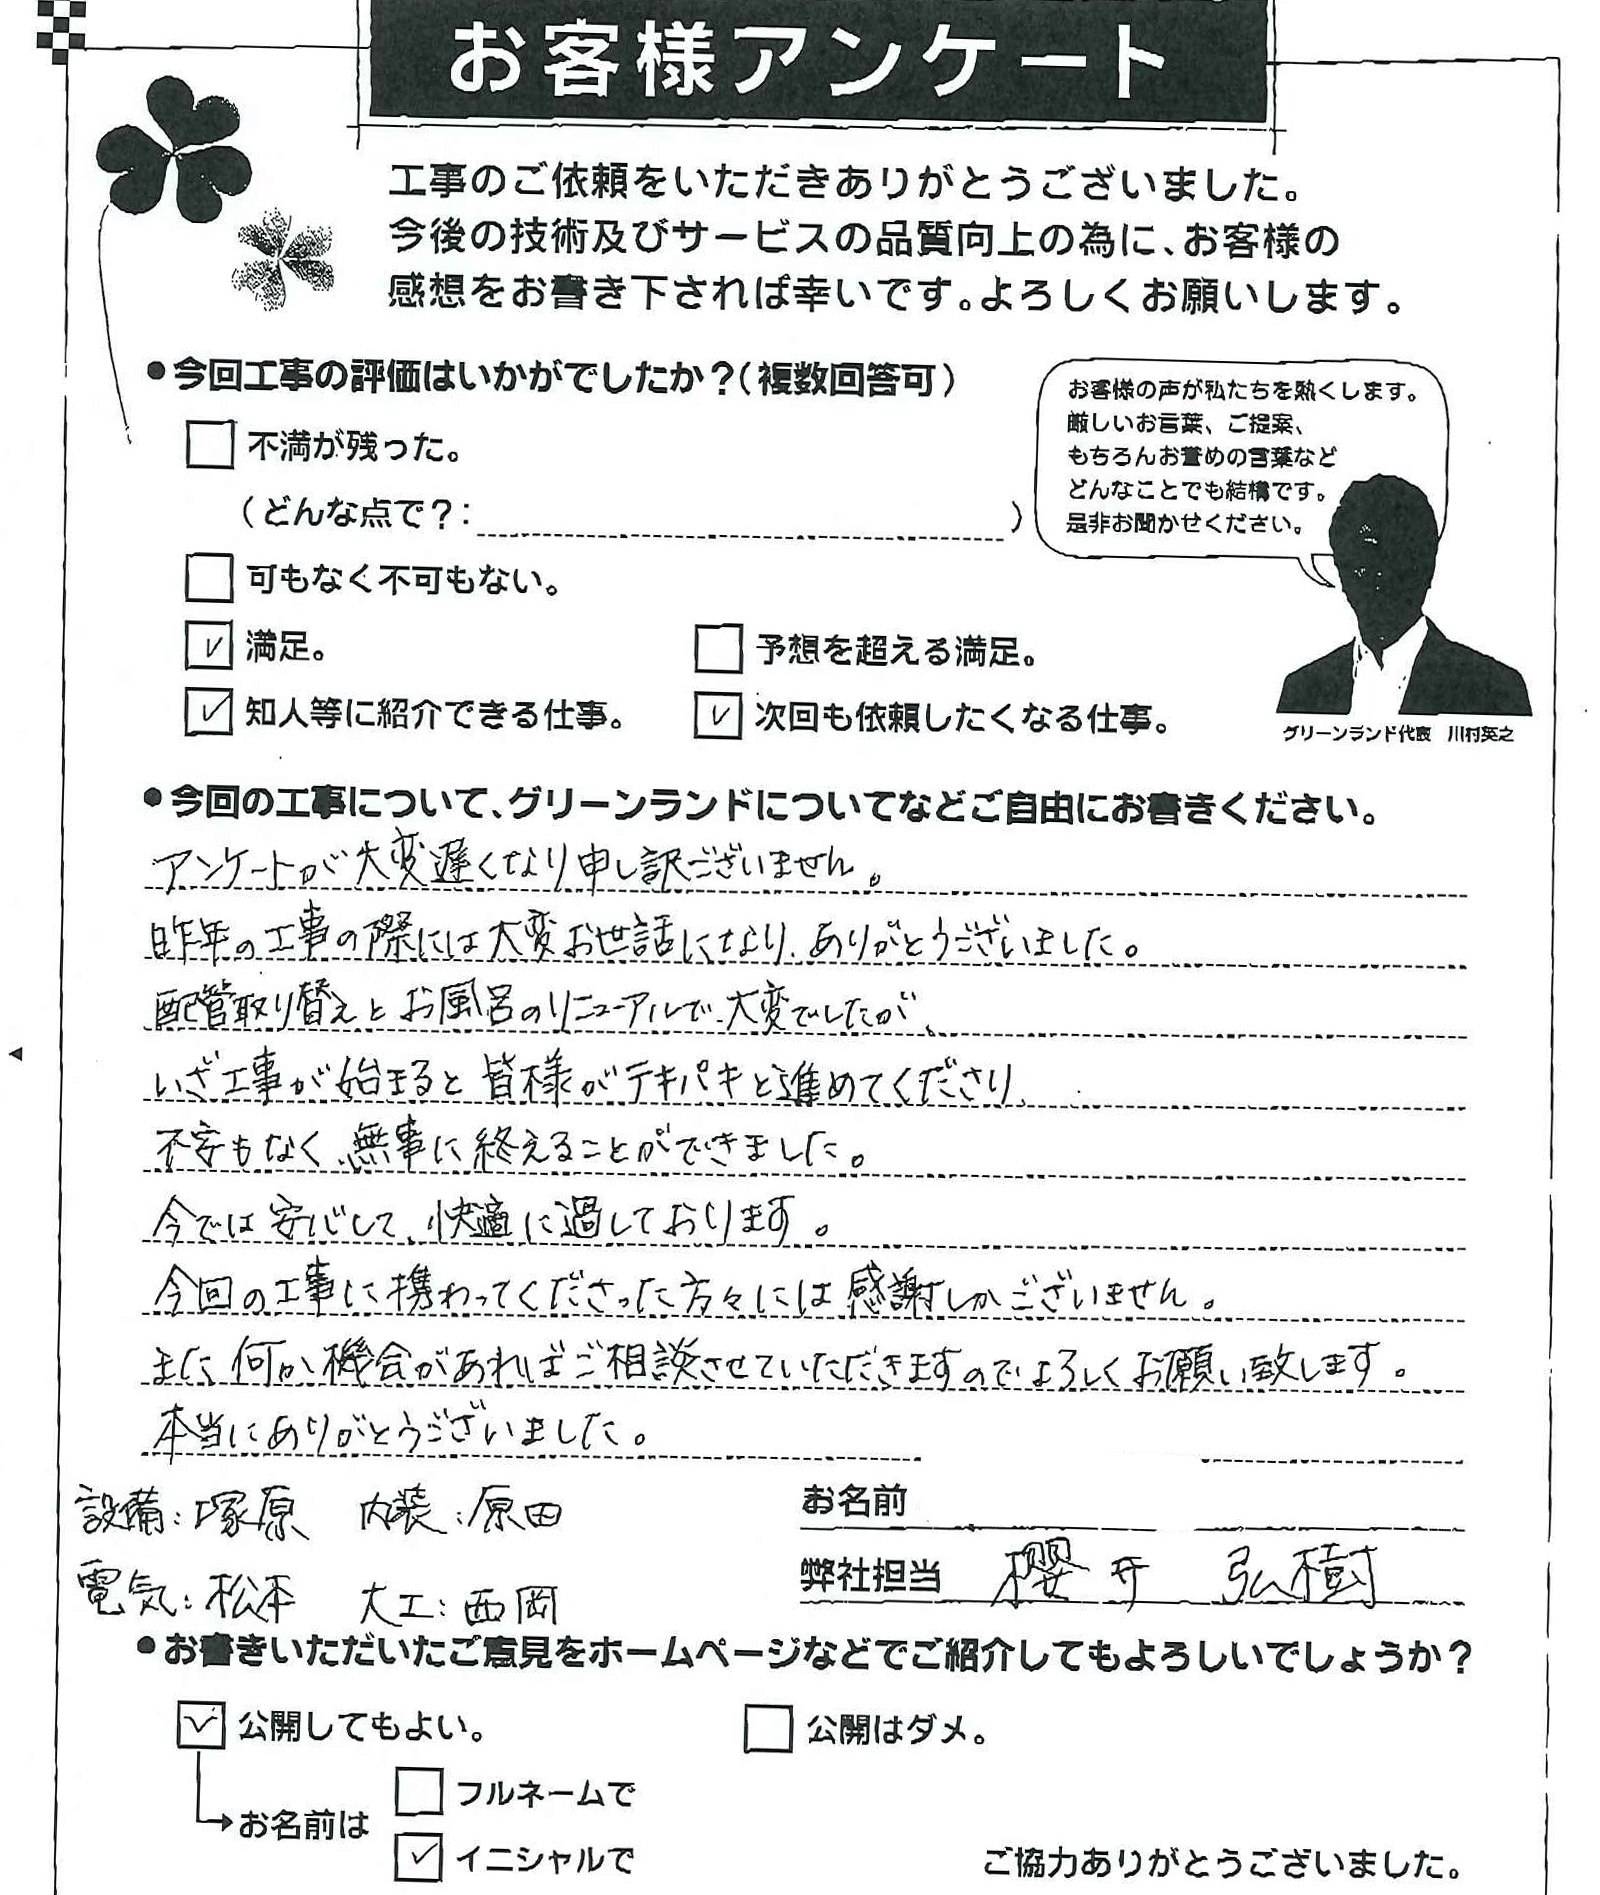 お客様アンケート
工事のご依頼をいただきありがとうございました。
今後の技術及びサービスの品質向上の為に、お客様の
感想をお書き下されば幸いです。よろしくお願いします。
●今回工事の評価はいかがでしたか？（複数回答可）
お客様の声が私たちを熱くします。
厳しいお言葉、ご提案、
もちろんお誉めの言葉など
どんなことでも結構です。
是非お聞かせください。
不満が残った。
（どんな点で？： ）
可もなく不可もない。
満足。
予想を超える満足。
知人等に紹介できる仕事。
次回も依頼したくなる仕事。
グリーンランド代表 川村英之
●今回の工事について、グリーンランドについてなどご自由にお書きください。
アンケートが大変遅くなり申し訳ございません。
昨年の工事の際には大変お世話になり、ありがとうございました。
配管取り替えとお風呂のリニューアルで、大変でしたが、
いざ工事が始まると皆様がテキパキと進めてくださり、
不安もなく、無事に終えることができました。
今では安心して、快適に過しております。
今回の工事に携わってくださった方々には感謝しかございません。
また、何か機会があればご相談させていただきますのでよろしくお願い致します。
本当にありがとうございました。
設備：塚原 内装：原田
電気：松本 大工：西岡
お名前
弊社担当 櫻井 弘樹
●お書きいただいたご意見をホームページなどでご紹介してもよろしいでしょうか？
公開してもよい。
公開はダメ。
お名前は
フルネームで
イニシャルで
ご協力ありがとうございました。